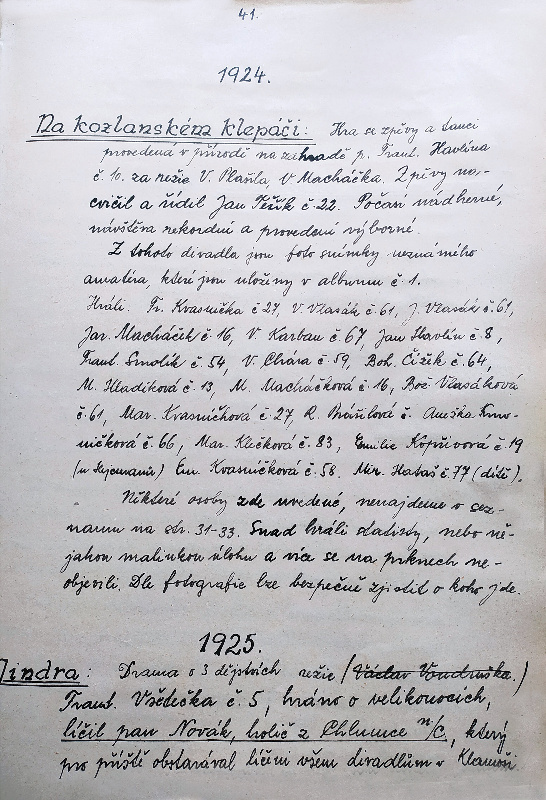 41.
1924.
Na kozlanském klepáči: Hra se zpěvy a tanci
provedená v přírodě na zahradě p. Frant. Havlína
č 10. za režie V. Plašila, V Macháčka. Zpěvy na-
cvičil a řídil Jan č 22. Počasí nádherné,
návštěva rekordní a provedení výborné.
Z tohoto divadla jsou foto snímky neznámého
amatéra, které jsou uloženy v albumu č 1.
Hráli. Fr. Krasnička č 27, V. Vlasák č 61, J. Vlasák č. 61,
Jar. Macháček č 16, V. Karban č 67, Jan Havlín č 8,
Frant. Smolík č. 54, V. Chára č. 59, Boh. Čížek č. 64,
M. Hladíková č. 13, M. Macháčková č. 16, Bož Vlasáková
č. 61, Mar. Krasničková č. 27, R. č. Anežka
ničková č. 66, Mar. Klečková č. 83, Emilie Kopřivová č. 19
Em. Krasničková č. 58. Mir. Hataš č. 77 (dítě).
Některé osoby zde uvedené, nenajdeme v sez-
namu na str. 31-33. Snad hráli statisty, nebo ně-
jakou malinkou úlohu a více se na prknech ne-
objevili. Dle fotografie lze bezpečně zjistit o koho jde.
1925.
Jindra: Drama o 3 dějstvích režie (Václav Vondruška.)
Frant. Všetečka č. 5, hráno o velikonocích,
líčil pan Novák, holič z Chlumce n/C, který
pro příště obstarával líčení všem divadlům v Klamoši